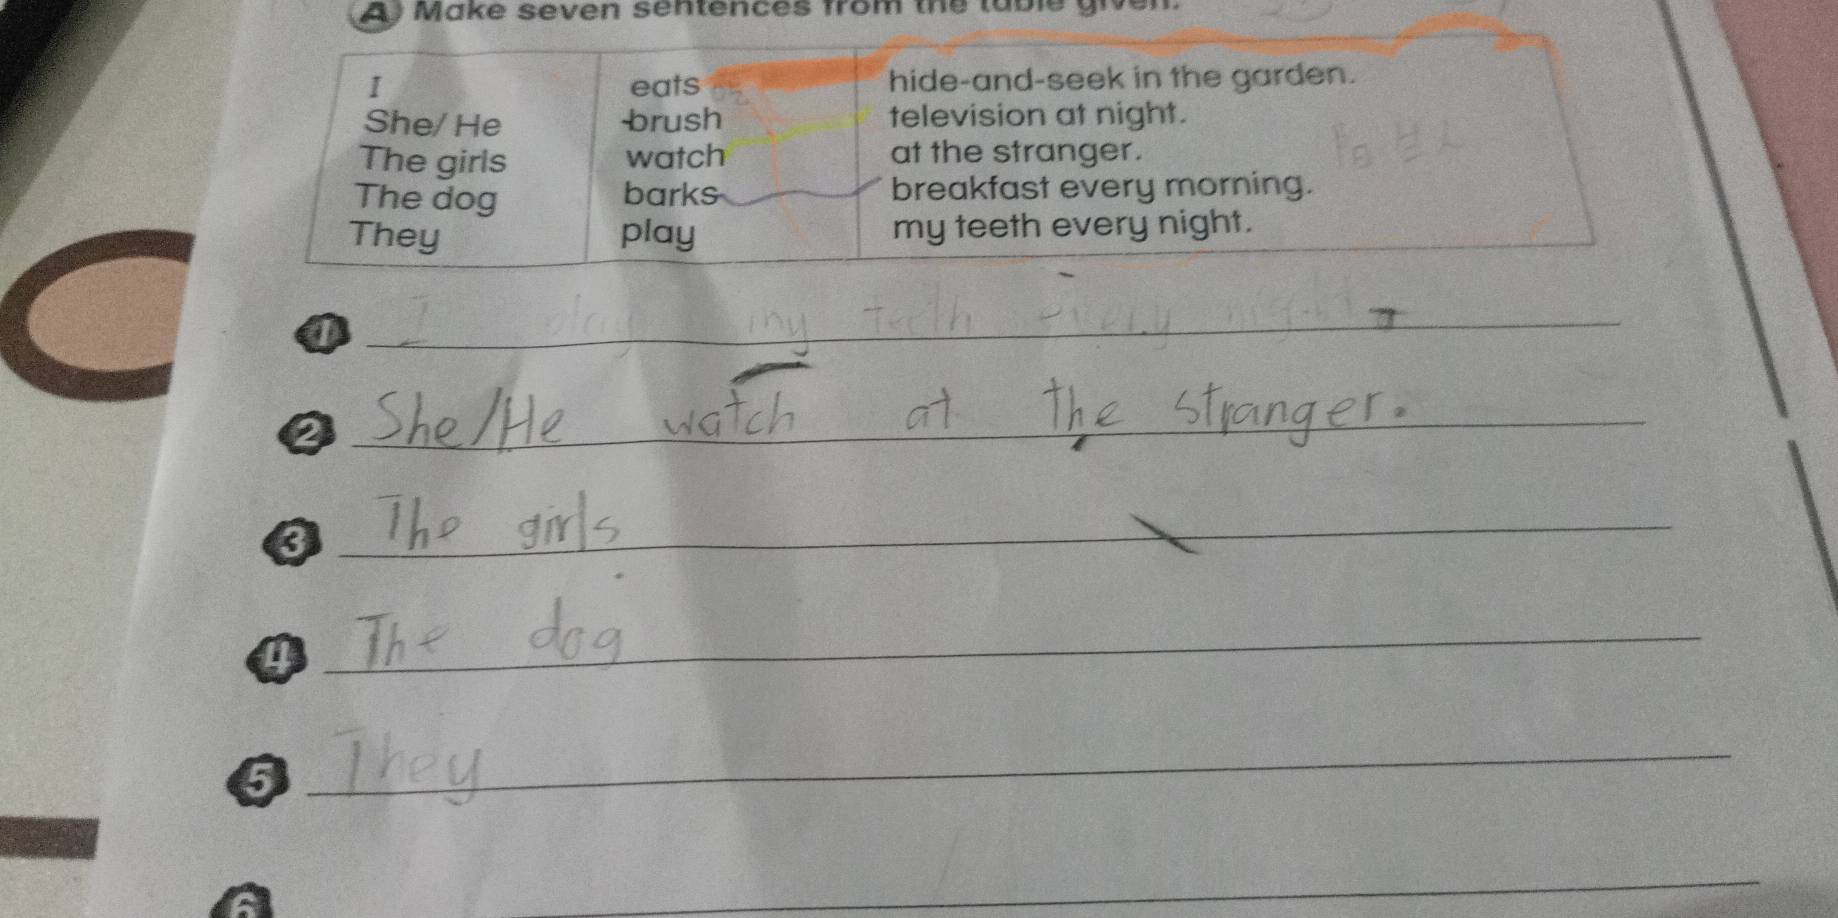 A Make seven sentences from the table given.
I eats hide-and-seek in the garden.
She/ He brush television at night.
The girls watch at the stranger.
The dog barks breakfast every morning.
They play my teeth every night.
1 I play my teeth every night
2 She/He watch at the stranger.
3 The girls
4 The dog
5 They
6